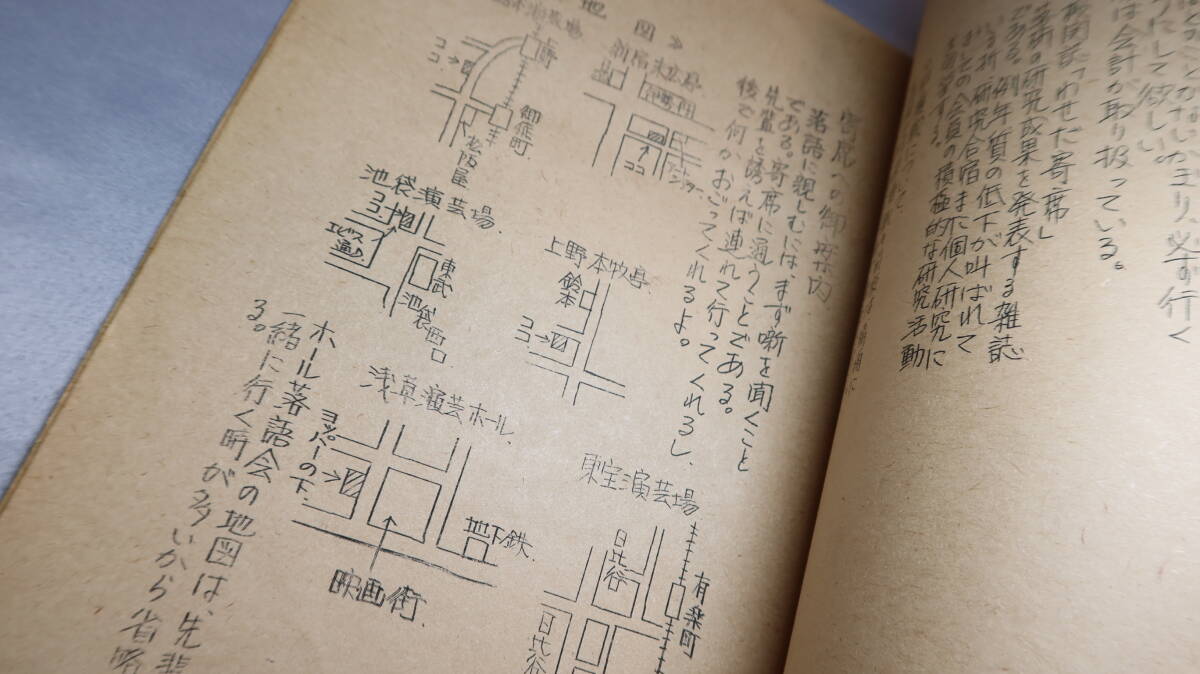 はかないとか
あまり必ず行く
うにして欲しい。
は会計が取り扱っている。
機関誌「わせだ寄席」
芸術の研究成果を発表する雑誌
である。例年質の低下が叫ばれて
いるが、研究合宿また個人研究に
会員の積極的な研究活動
地図》
寄席への御案内
落語に親しむには、まず噺を聞くこと
である。寄席に通うことである。
先輩を誘えば連れて行ってくれるし、
後で何かおごってくれるよ。
新宿末広亭
伊勢丹
ココ
上野
御徒町
松坂屋
ココ
池袋演芸場
ココ
エビス通り
東武
池袋西口
上野本牧亭
鈴本
ココ
浅草演芸ホール
ヨッパーの下
地下鉄
映画街
東宝演芸場
日比谷
有楽町
日比谷
ホール落語会の地図は、先輩
一緒に行く時が多いから省略
る。